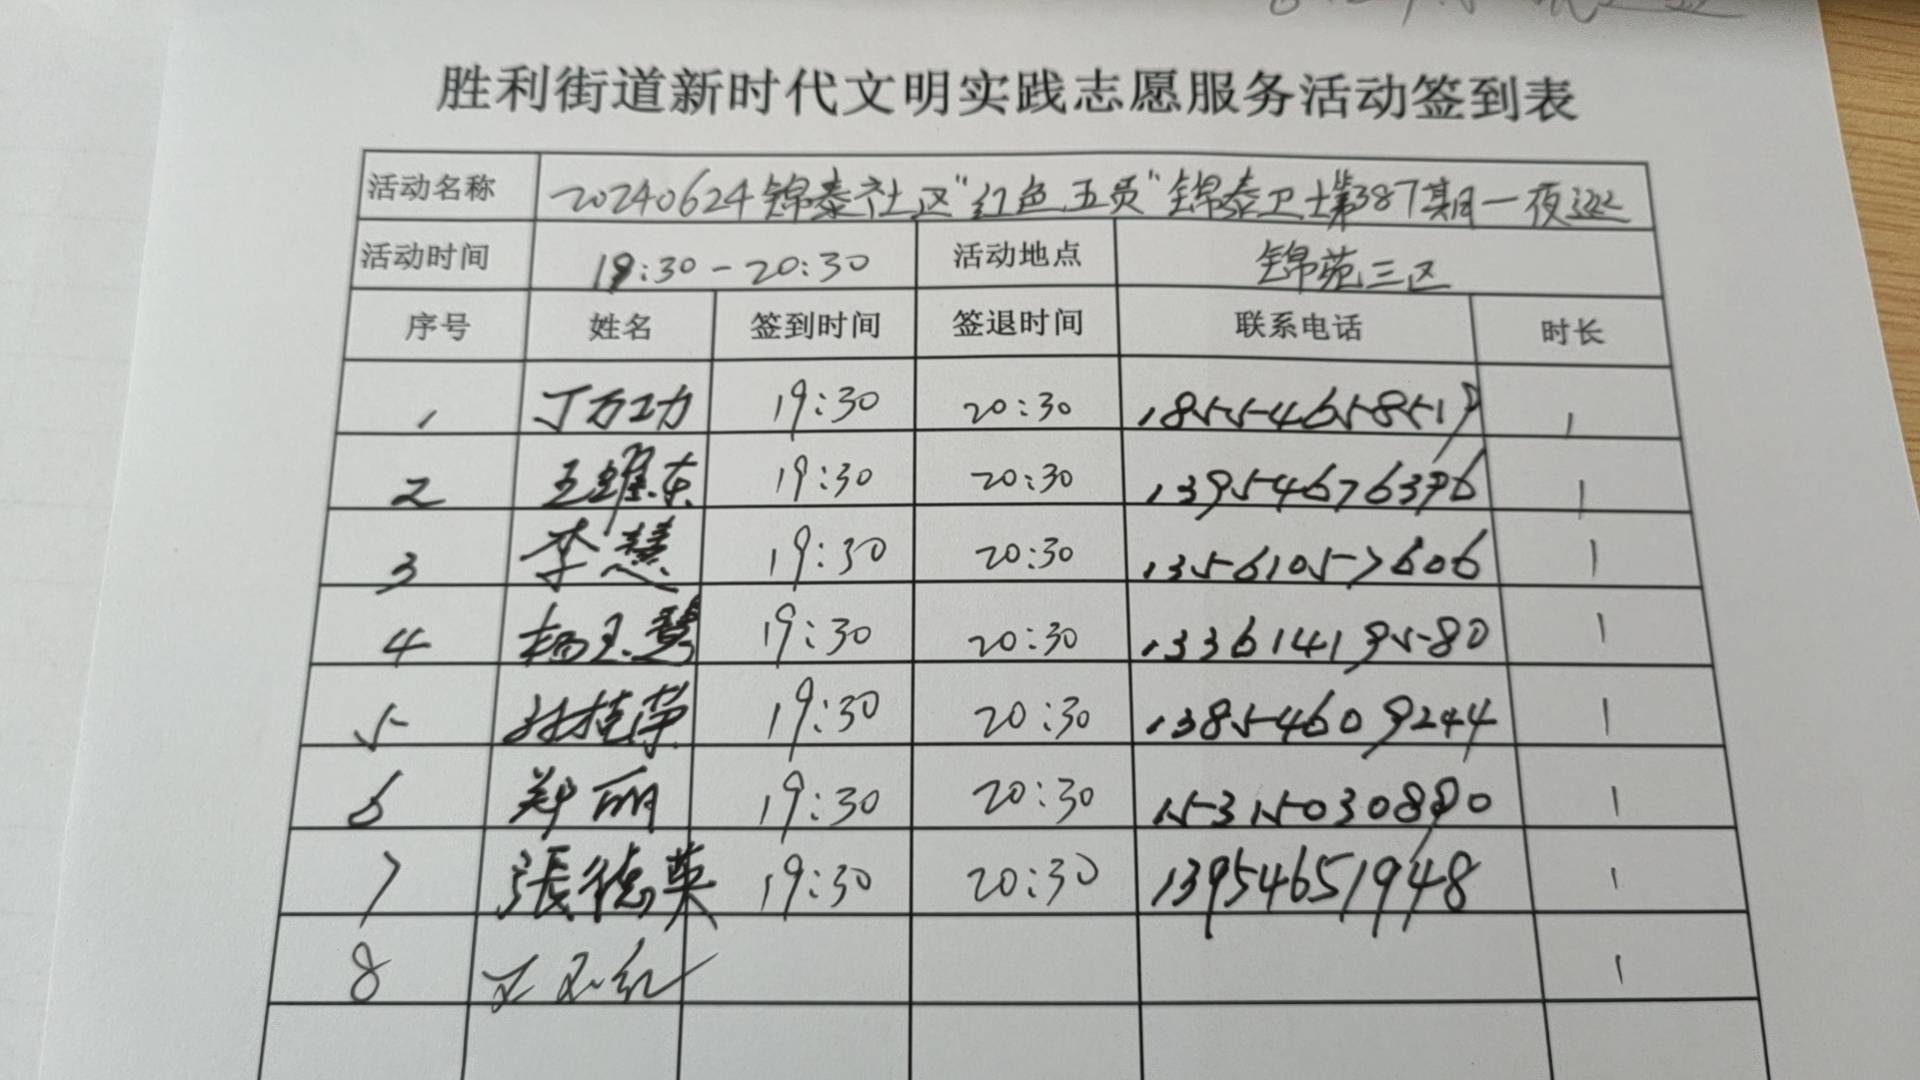 胜利街道新时代文明实践志愿服务活动签到表
活动名称 20240624锦泰社区“红色五员”锦泰卫士第387期日一夜巡
活动时间 19:30-20:30 活动地点 锦苑三区
序号 姓名 签到时间 签退时间 联系电话 时长
1 丁万功 19:30 20:30 1855465851 1
2 王维东 19:30 20:30 13954676376 1
3 李慧 19:30 20:30 13561057606 1
4 杨玉慧 19:30 20:30 13361419580 1
5 孙桂荣 19:30 20:30 13854609244 1
6 郑丽 19:30 20:30 15315030890 1
7 張德英 19:30 20:30 13954651948 1
8 红 1